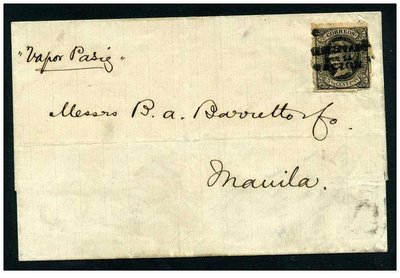 CORREOS
"Vapor Pasig"
Messrs B. A. Barretto & Co.
Manila.